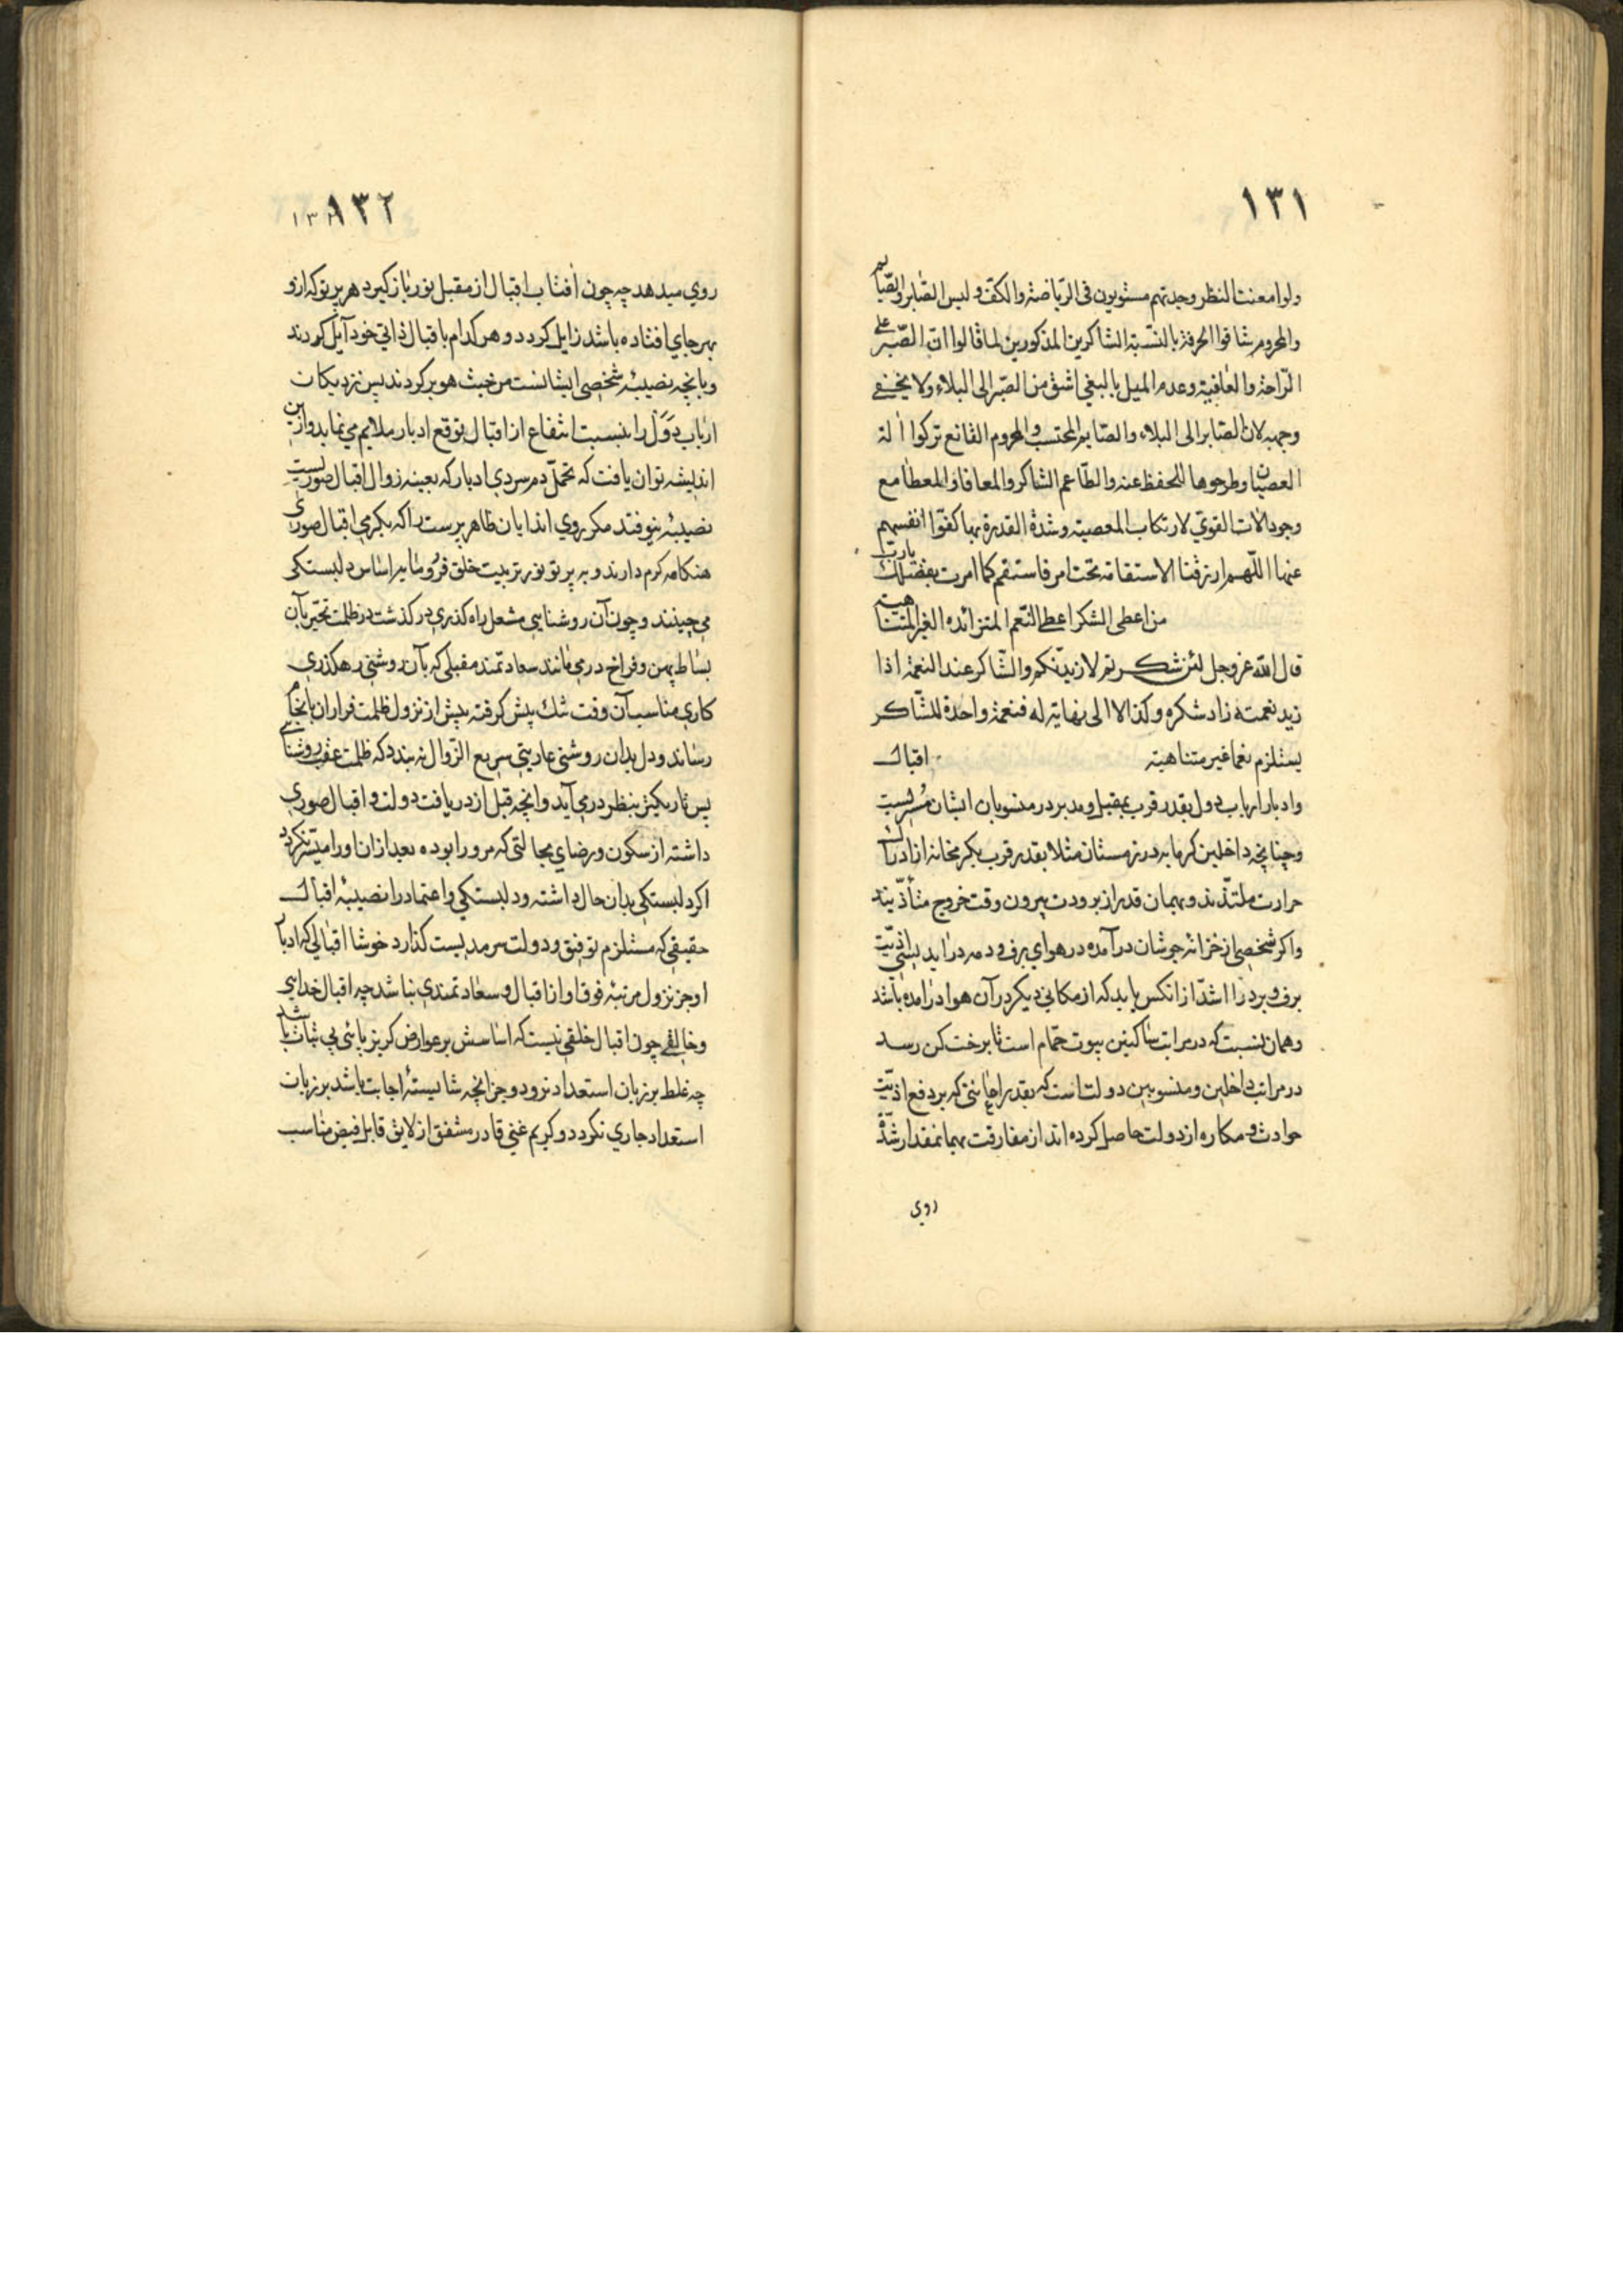 ١٣١
ولوا معنت النظر وجدتهم مستويون فى الرّياضة والكفّ وليس الصّابر والصّايم
والمحروم شاقوا الحرفة بالنسّبة الشاكرين المذكورين لما قالوا انّ الصّبر على
الرّاحة والعافية وعدم الميل بالبغي اشق من الصّبر الى البلاء ولا يخفى
وجهه لان الصّابر الى البلاء والصّابر المحتسب والمحروم القانع تركوا الة
العصيان وطرحوها للحفظ عنه والطّاعم الشاكر والمعافا والمعطا مع
وجود الات القوىّ لارتكاب المعصية وشدة القدرة بها كفّوا انفسهم
عنها اللّهم ارزقنا الاستقامة تحت امر فاستقم كما امرت بفضلك يا ربّ
من اعطى الشكر اعطى النّعم المتزائده الغير المتناهية
قال الله عزوجل لئن شكرتم لازيدّنكم والشّاكر عند النعمة اذا
زيد نعمته زاد شكره وكذا لا الى نهاية له فنعمة واحدة للشّاكر
يستلزم نعما غير متناهية اقبال
وادبار ارباب دول بقدر قرب بمقبل ومدبر در منسوبان ايشان مُسريست
وچنانچه داخلين كرمابه در زمستان مثلا بقدر قرب بكرمخانه از ادراك
حرارت ملتذّند وبهمان قدر از برودت بيرون وقت خروج متأذّيند
واكر شخصى از خزانه جوشان درآمده در هواى برف ودمه درايد اذيّت
برف وبرد را اشدّ از انكس يابد كه از مكانى ديكر در آن هوا درامده باشد
وهمان نسبت كه در مراتب ساكنين بيوت حمّام است تا برخت كن رسد
در مراتب داخلين ومنسوبين دولت است كه بقدر راحتى كه بر دفع اذيّت
حوادث ومكاره از دولت حاصل كرده اند از مفارقت بهمانمقدار شدّة
روى
١٣٢
روي ميدهد چه چون آفتاب اقبال از مقبل نور باز كيرد هر پرتو كه ازو
بهر جاي افتاده باشد زايل كردد وهر كدام باقبال ذاتي خود آيل كردند
وبانچه نصيبۀ شخصى ايشانست من حيث هو بركردند پس نزديكان
ارباب دُوَل را نسبت انتفاع از اقبال توقع ادبار ملايم مي نمايد وازين
انديشه توان يافت كه تحمّل دم سردي ادبار كه بعينه زوال اقبال صوريست
نصيبۀ نيوفتد مكر روي اندايان ظاهر پرست را كه بكرمى اقبال صورى
هنكامه كرم دارند وبه پرتو نور تربيت خلق فرومايه اساس دلبستكى
مي چينند وچون آن روشنايي مشعل راه كذري در كذشت در ظلمت تحيّر بآن
بساط پهن وفراخ در مي مانند سعادتمند مقبلى كه بآن روشنى رهكذرى
كارى مناسب آن وقت تنك پيش كرفته پيش از نزول ظلمت فراران بانجام
رساند ودل بدان روشنى عاريتي سريع الزّوال نه بندد كه ظلمت عقب روشنائى
بس تاريكتر بنظر در مي آيد وانچه قبل از دريافت دولت واقبال صورى
داشته از سكون ورضاي بحالتى كه مرورا بوده بعد ازان اورا ميسّر نكردد
اكر دلبستكى بدان حال داشته ودلبستكى واعتماد را نصيبۀ اقبال
حقيقي كه مستلزم توفيق ودولت سرمديست كذارد خوشا اقبالى كه ادبار
او جز نزول مرتبۀ فوق او از اقبال وسعادتمندى نباشد چه اقبال خدايى
وخالقى چون اقبال خلقى نيست كه اساسش بر عوارض كريز پائى بي ثبات باشد
چه غلط بر زبان استعداد نرود وجز انچه شايستۀ اجابت باشد بر زبان
استعداد جاري نكردد وكريم غني قادر مشفق از لايق قابل فيض مناسب